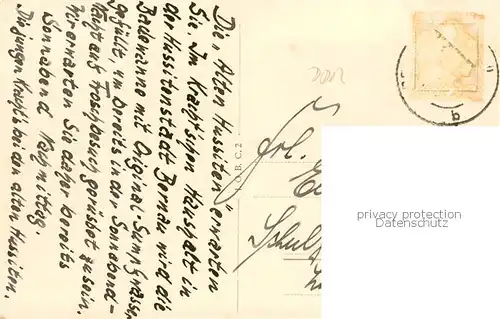 Die „Alten Hussiten" erwarten
Sie. Im Krachtsigen Haushalt in
der Hussitenstadt Bernau wird die
Badewanne mit Original-Sumpfgrasser
gefüllt, um bereits in der Sonnabend-
Nacht auf gerüstet zu sein.
Wir erwarten Sie daher bereits
Sonnabend Nachmittag.
Die jungen Krachts bei den alten Hussiten.
B. C. 2
Frl.
privacy protection
Datenschutz